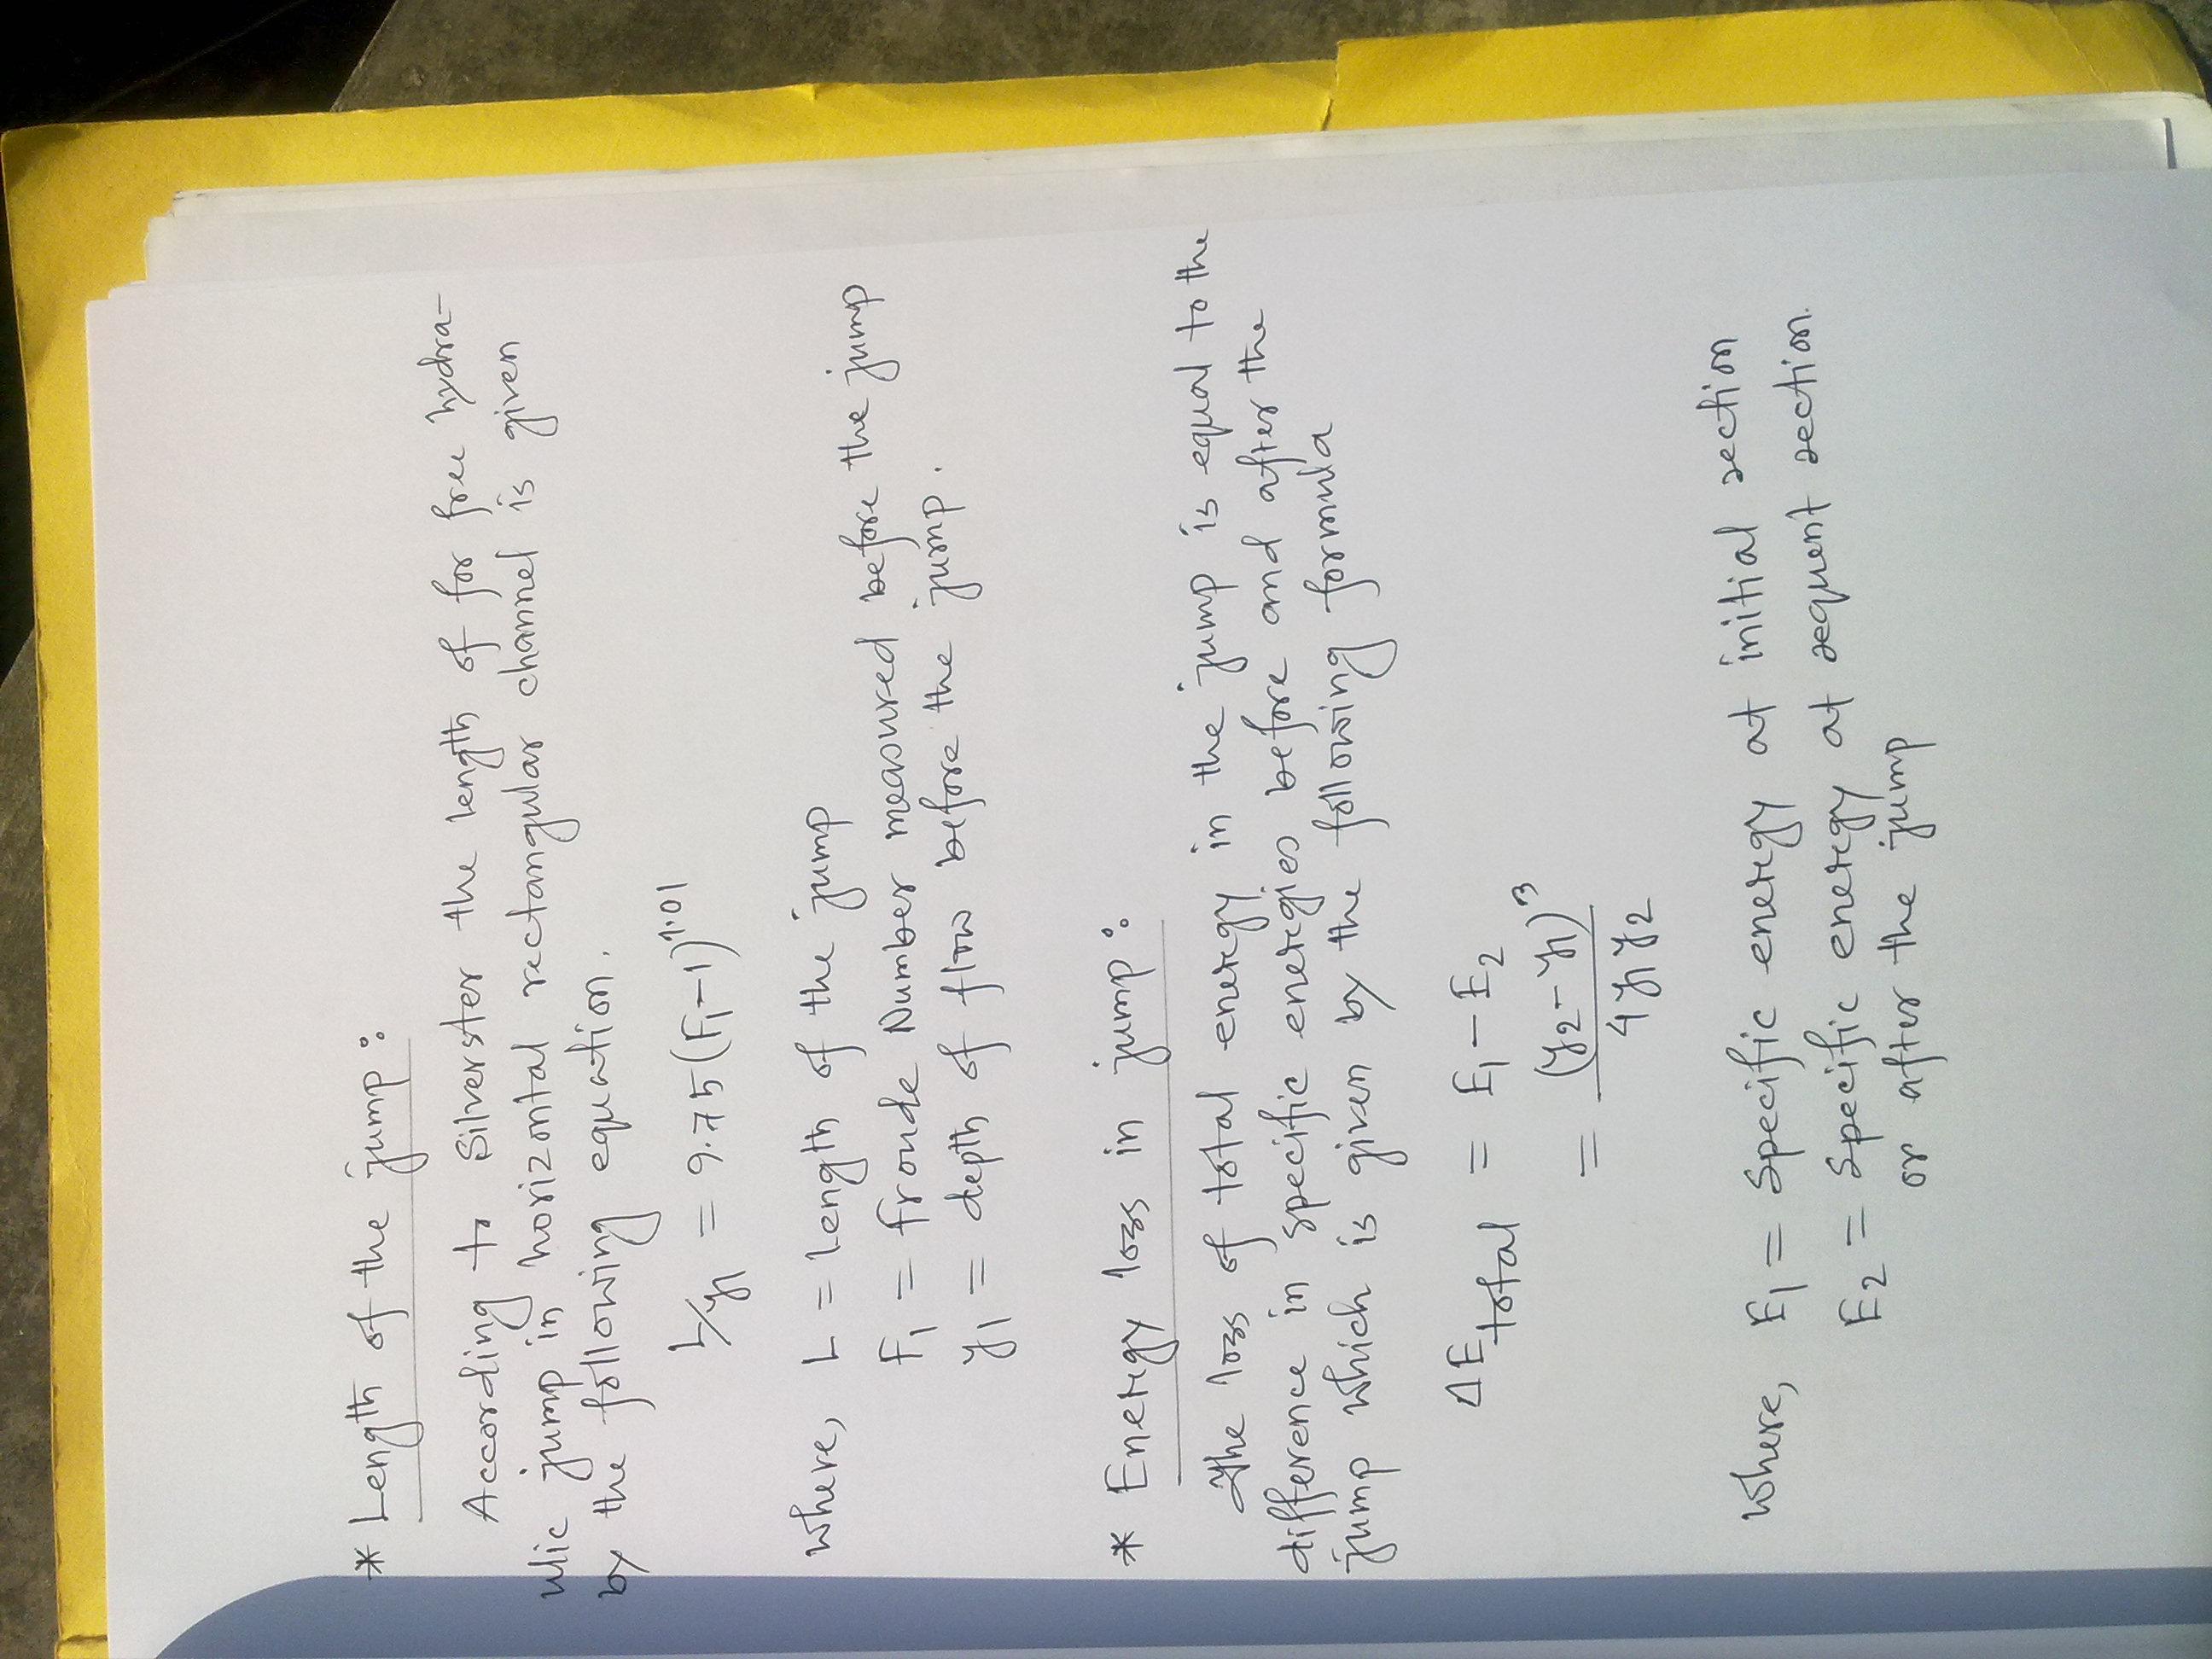 * Length of the jump :
According to Silverster the length of for free hydra-
ulic jump in horizontal rectangular channel is given
by the following equation.
L/y1 = 9.75 (F1-1)^1.01
where, L = length of the jump
F1 = Froude Number measured before the jump
y1 = depth of flow before the jump.
* Energy loss in jump :
The loss of total energy in the jump is equal to the
difference in specific energies before and after the
jump which is given by the following formula
ΔE total = E1 - E2
= (y2 - y1)^3 / 4 y1 y2
where, E1 = Specific energy at initial section
E2 = Specific energy at sequent section
or after the jump